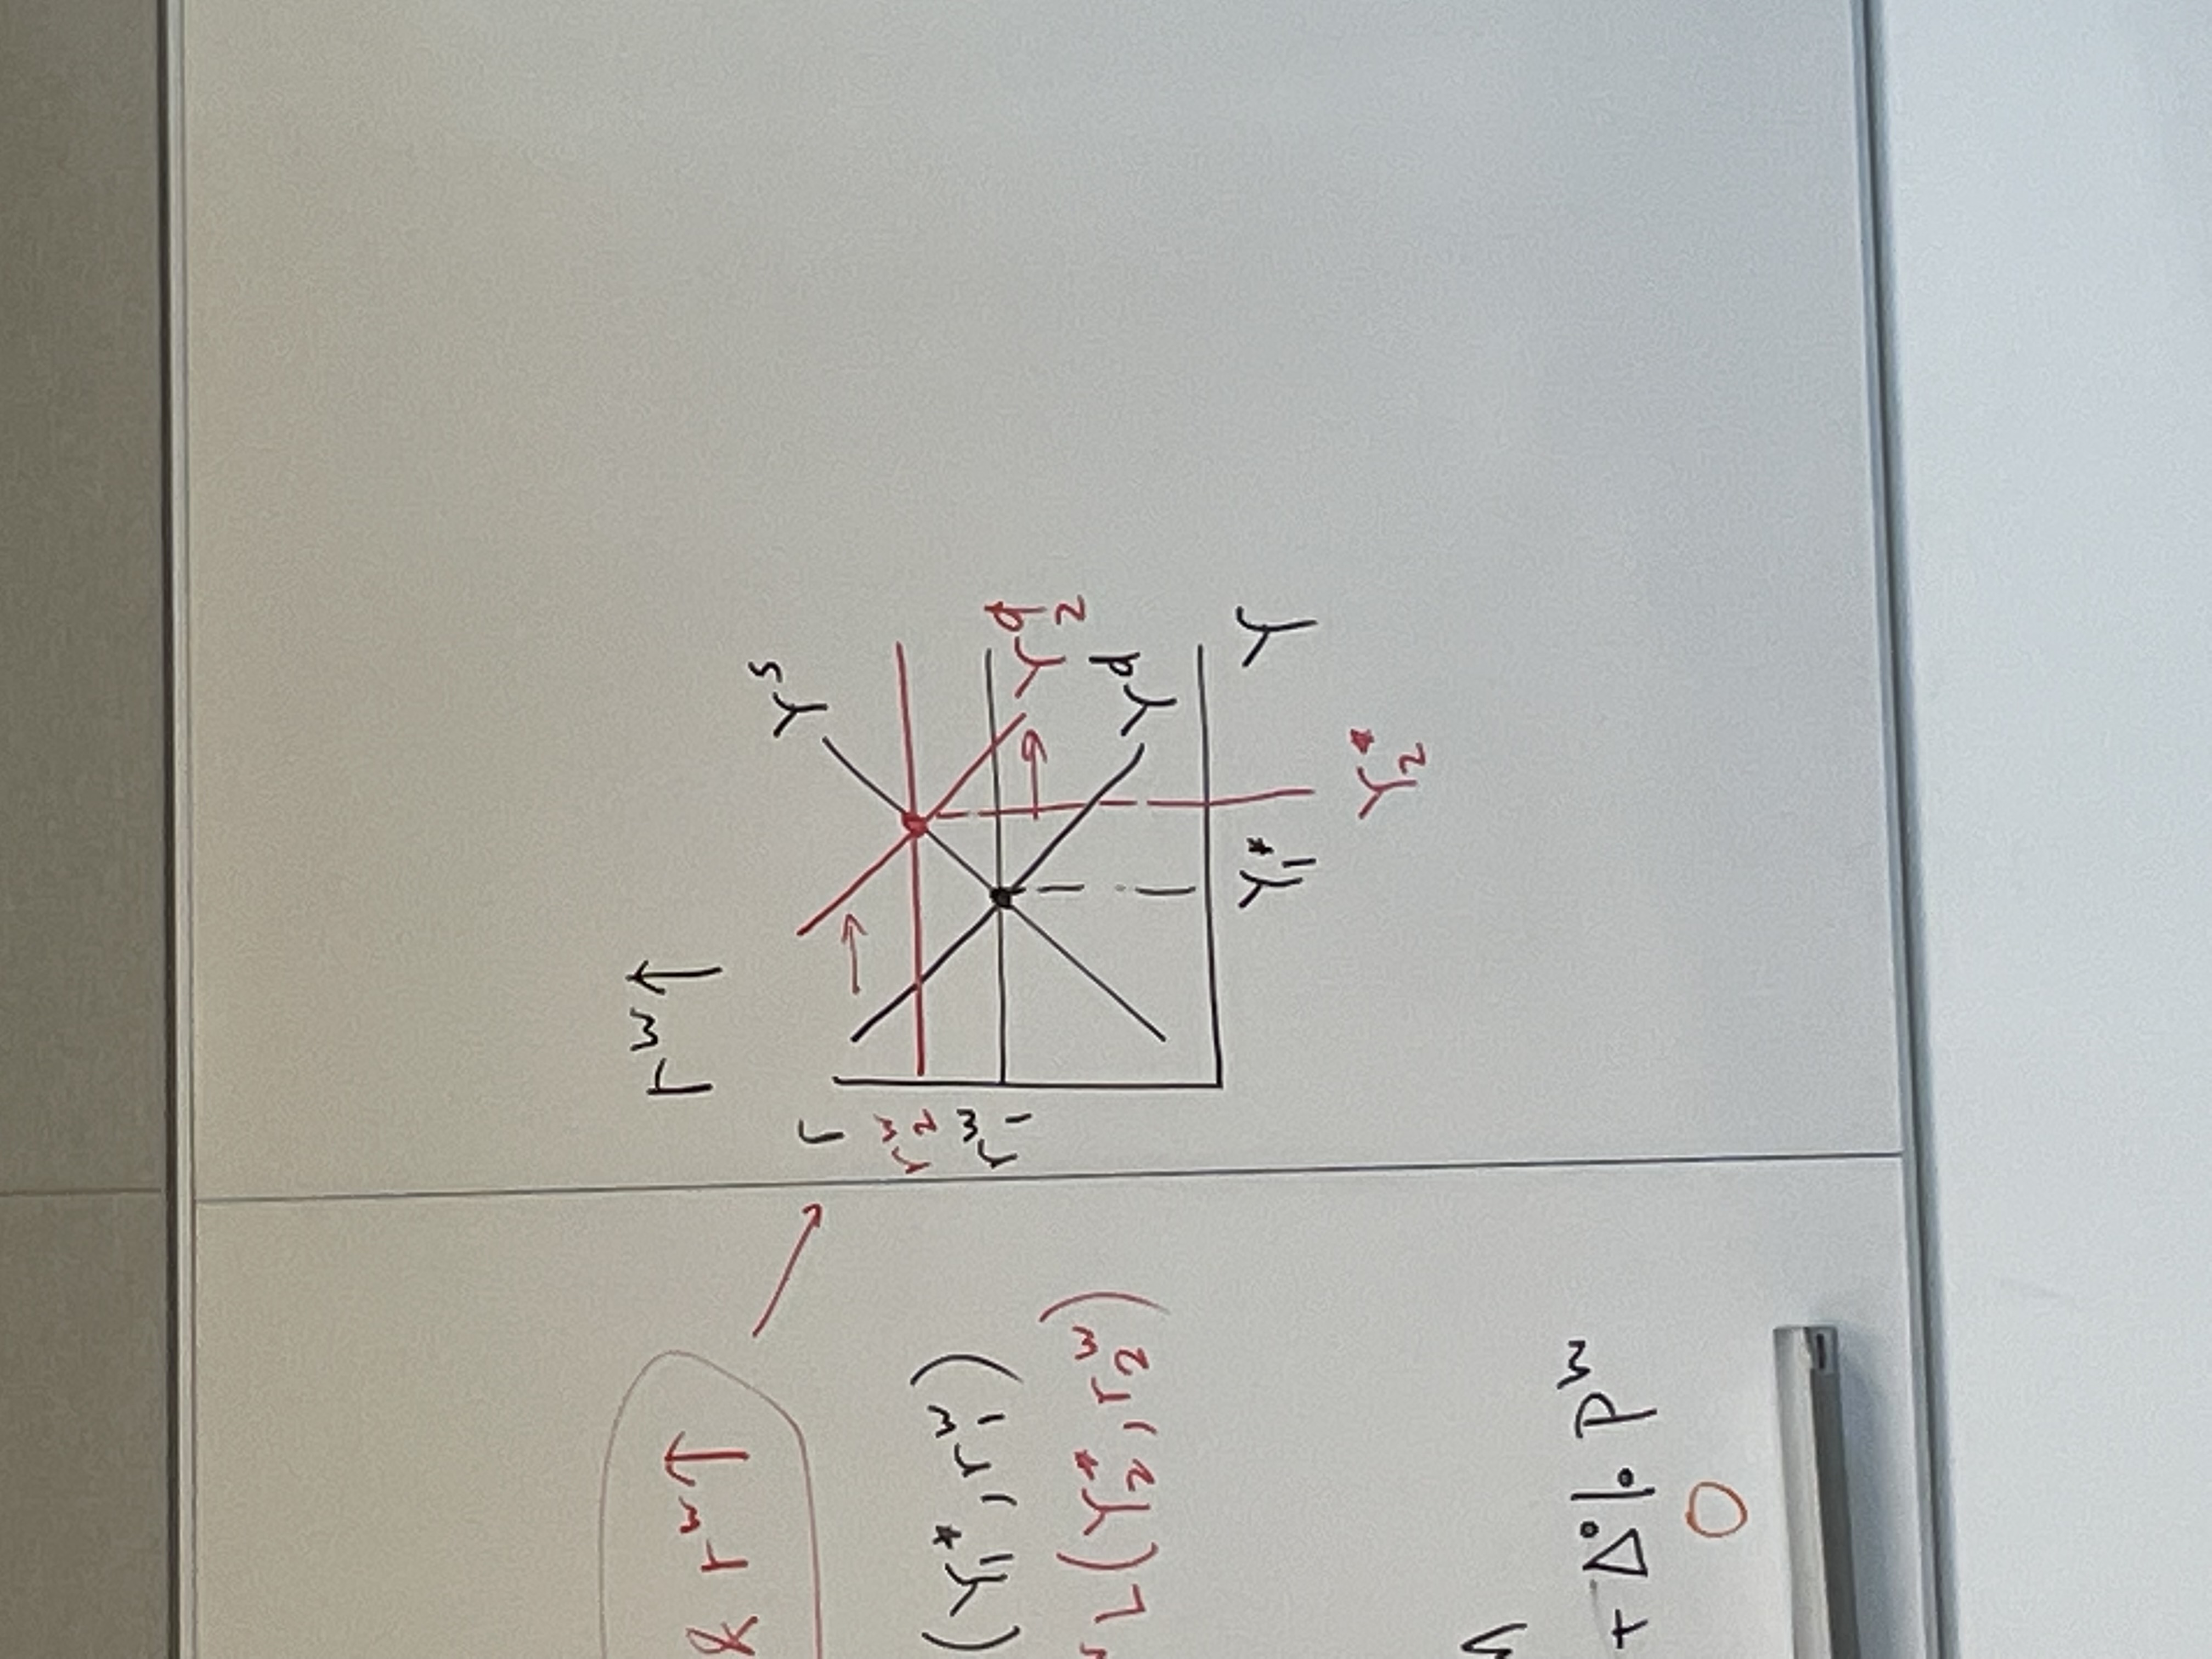 & r^w ↑
(Y₁*, r₁^w)
L(Y₂*, r₂^w)
+ Δ% P^w
O
r^w ↑
r
Y^s
r₂^w
r₁^w
Y₂^d
Y^d
Y₁*
Y
Y₂*